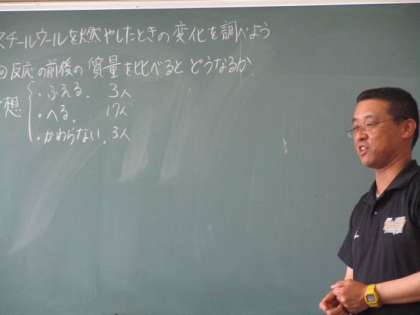 スチールウールを燃やしたときの変化を調べよう
反応の前後の質量を比べるとどうなるか
想
・ふえる. 3人
・へる. 17人
・かわらない. 3人